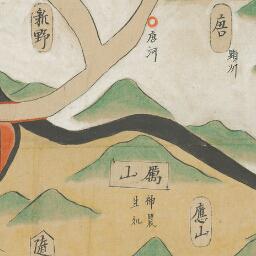 新野
唐河
唐
潁川
厲山
神農
生於
應山
隨